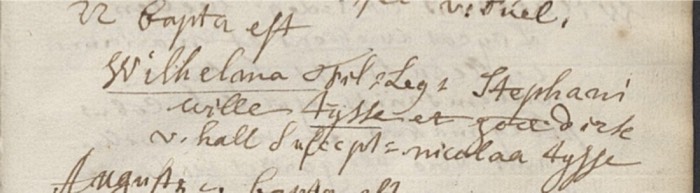 v: Tüel.
22 bapta est
Wilhelma Fil= Leg= Stephani
wille tysse et goe dirk
v. hall Suscept= nicolaa tysse
August bapta est